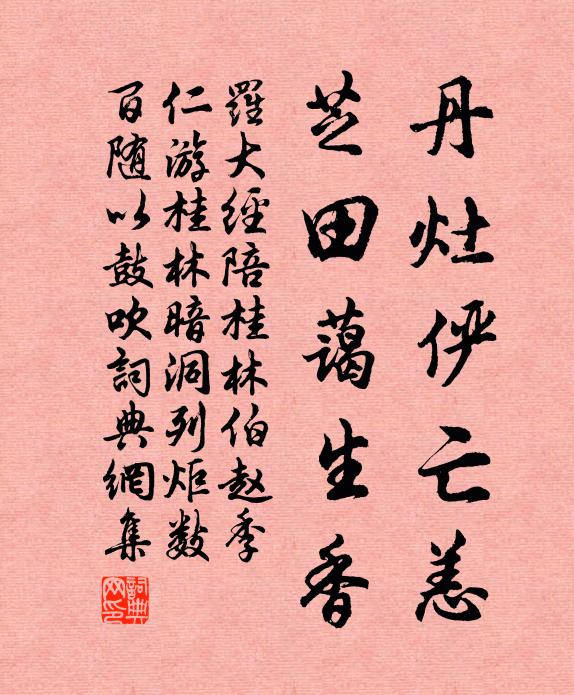 丹灶俨亡恙
芝田蔼生香
羅大經陪桂林伯赵季
仁游桂林暗洞列炬数
百随以鼓吹詞典網集
詞典網印